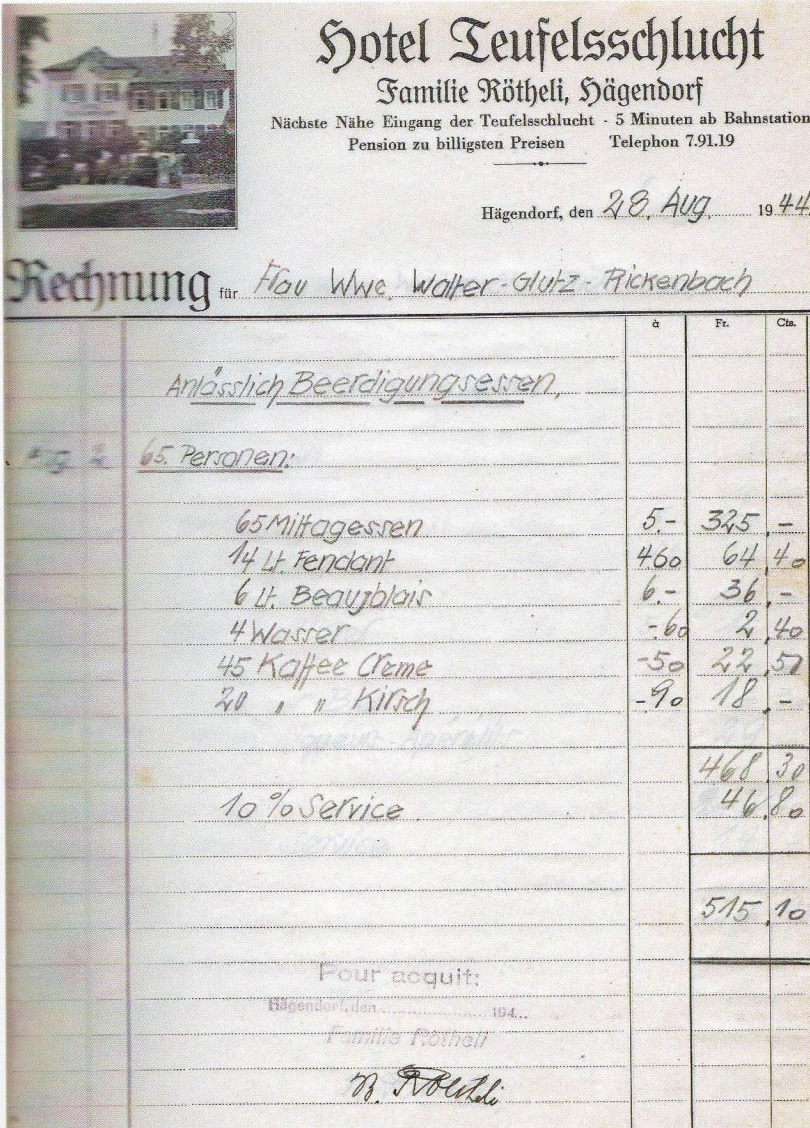 Hotel Teufelsschlucht
Familie Rötheli, Hägendorf
Nächste Nähe Eingang der Teufelsschlucht - 5 Minuten ab Bahnstation
Pension zu billigsten Preisen Telephon 7.91.19
Hägendorf, den 28. Aug. 1944
Rechnung für Frau Wwe. Walter-Glutz-Rickenbach
à Fr. Cts.
Anlässlich Beerdigungsessen,
65. Personen:
65 Mittagessen 5.- 325,-
14 Lt. Fendant 460 64,40
6 Lt. Beaujolais 6.- 36,-
4 Wasser -60 2,40
45 Kaffee Creme -50 22,50
20 " " Kirsch -90 18,-
468,30
10 % Service 46,80
515,10
Pour acquit:
Hägendorf, den 194...
Familie Rötheli
B. Rötheli